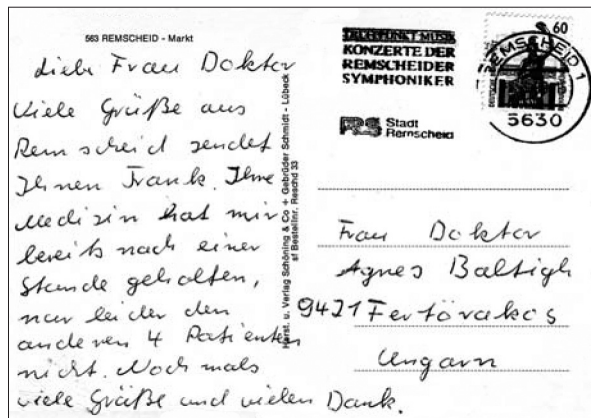 563 REMSCHEID - Markt
Liebe Frau Doktor
Viele Grüße aus
Remscheid sendet
Ihnen Frank. Ihre
Medizin hat mir
bereits nach einer
Stunde geholfen,
nur leider den
anderen 4 Patienten
nicht. Nochmals
viele Grüße und vielen Dank.
Herst. u. Verlag Schöning & Co + Gebrüder Schmidt - Lübeck
Bestellnr. Reschd 33
TREFFPUNKT MUSIK
KONZERTE DER
REMSCHEIDER
SYMPHONIKER
Stadt
Remscheid
60
REMSCHEID 1
5630
Frau Doktor
Agnes Baltigh
9421 Fertörakos
Ungarn